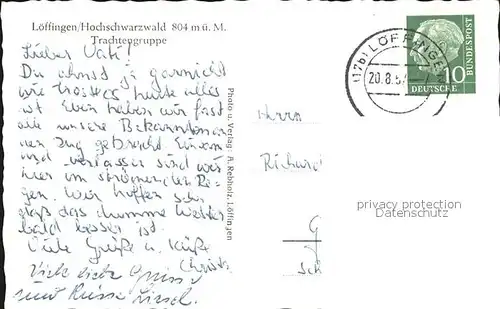 Löffingen/Hochschwarzwald 804 m ü. M.
Trachtengruppe
Lieber Vati!
Du ahnst ja garnicht
wie trostlos heute alles
ist. Eben haben wir fast
alle unsere Bekannten an
den Zug gebracht. Einsam
und verlassen sind wir
hier im strömenden Re-
gen. Wir hoffen sehr
daß das dumme Wetter
bald besser ist.
Viele Grüße u. Küße
Christa
Viele liebe Grüsse
und Küsse
Photo u. Verlag: A. Rebholz, Löffingen
(17b) LÖFFINGEN
20.8.5
10
DEUTSCHE
BUNDESPOST
Herrn
Richard
G
Sch
privacy protection
Datenschutz